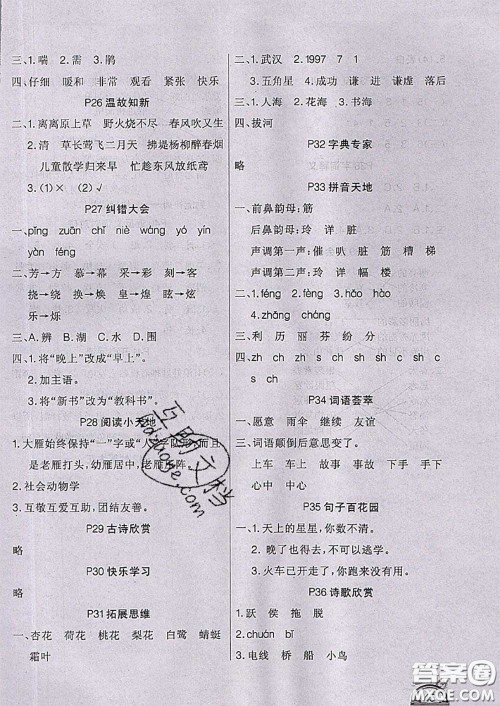 三、1. 喘　2. 需　3. 鹃
四、仔细　暖和　非常　观看　紧张　快乐
P26 温故知新
一、1. 离离原上草　野火烧不尽　春风吹又生
2. 清　草长莺飞二月天　拂堤杨柳醉春烟
儿童散学归来早　忙趁东风放纸鸢
3. (1) ×　(2) √
P27 纠错大会
一、pīng zuān chī niè wáng yó yín
yàn féng
二、芳→方　慕→幕　采→彩　圆→园
挠→绕　换→焕　皇→煌　眩→炫
乐→烁
三、A. 辨　B. 湖　C. 水　D. 围
四、1. 将“晚上”改成“早上”。
2. 加主语。
3. 将“新书”改为“教科书”。
P28 阅读小天地
1. 大雁始终保持“一”字或“人”字队形,而且
是老雁打头,幼雁居中,老雁压阵。
2. 社会动物学
3. 互敬互爱互助,团结友善。
P29 古诗欣赏
略
P30 快乐学习
略
P31 拓展思维
一、杏花　荷花　桃花　梨花　白鹭　蜻蜓
霜叶
二、1. 武汉　2. 1997　7　1
3. 五角星　4. 成功　谦　进　谦虚　落后
三、1. 人海　2. 花海　3. 书海
四、拔河
P32 字典专家
略
P33 拼音天地
一、前鼻韵母:筋
后鼻韵母:玲　详　幸
声调第一声:催　叭　脏　筋　糟　梯
声调第二声:玲　详　幅　楼
二、1. féng　2. fēng　3. hǎo hào
4. zhāng cháng
三、利　历　丽　芬　纷　分
四、zh ch zh s ch sh sh sh c
s ch sh
P34 词语荟萃
一、愿意　雨伞　继续　友谊
三、词语颠倒后意思变了。
上车　车上　故事　事故　下地　地下
心中　中心
P35 句子百花园
一、1. 天上的星星,你数不清。
2. 晚了也得去,不可以逃学。
3. 火车已开走了,你来迟了。
P36 诗歌欣赏
一、1. 跃　侯　拖　脱
2. chuán bǐ
3. 电线　桥　船　小鸟
互助文档
答案圈
MXQE.COM